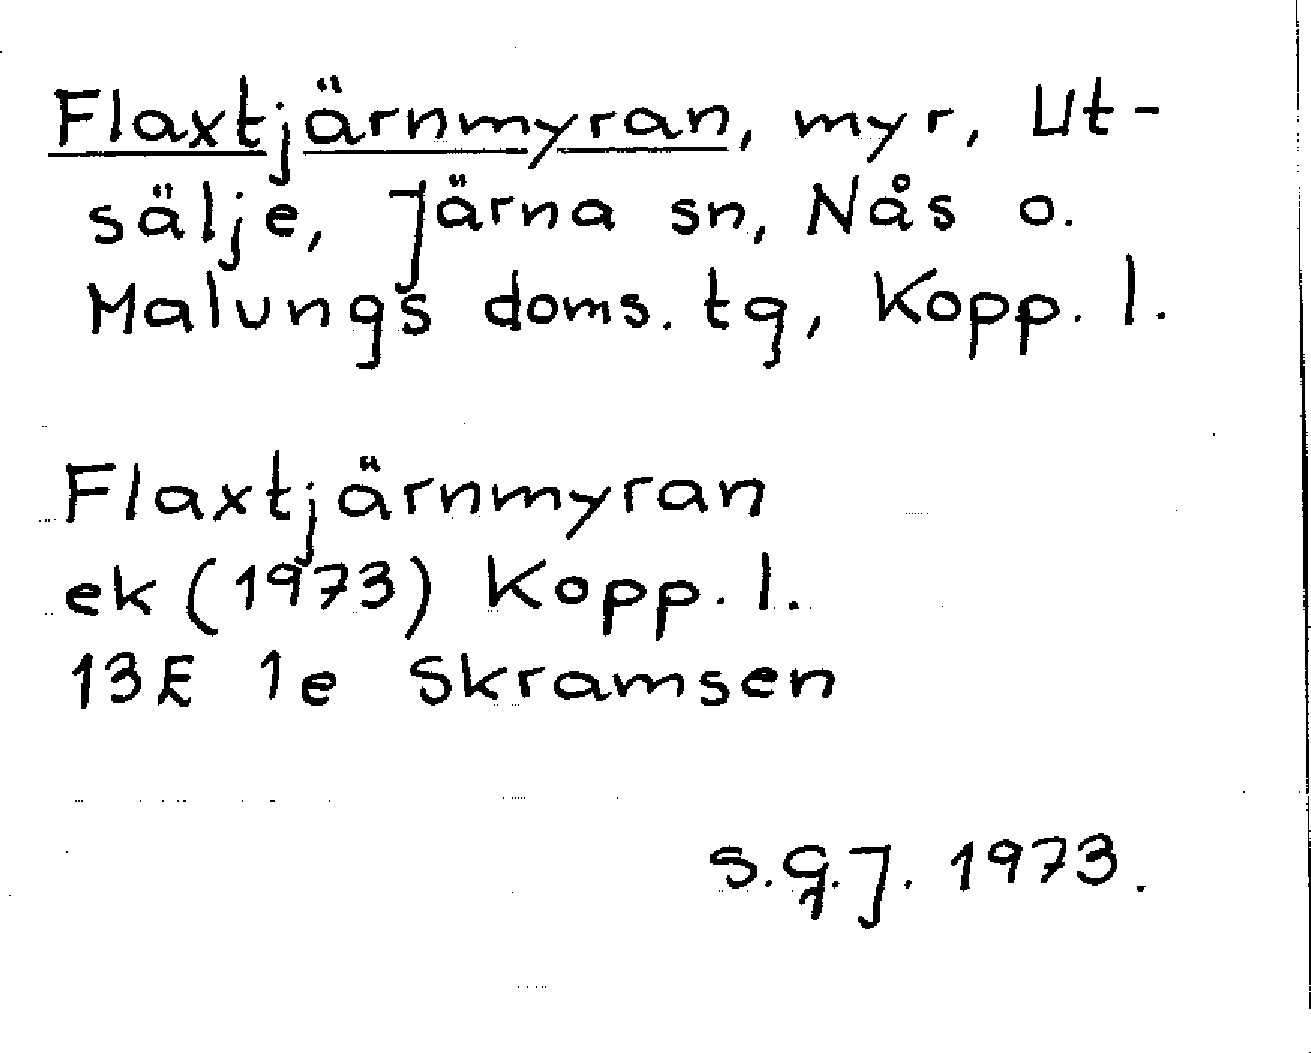 Flaxtjärnmyran, myr, Ut-
sälje, Järna sn, Nås o.
Malungs doms. tg, Kopp. l.
Flaxtjärnmyran
ek (1973) Kopp. l.
13E 1e Skramsen
S.G.J. 1973.